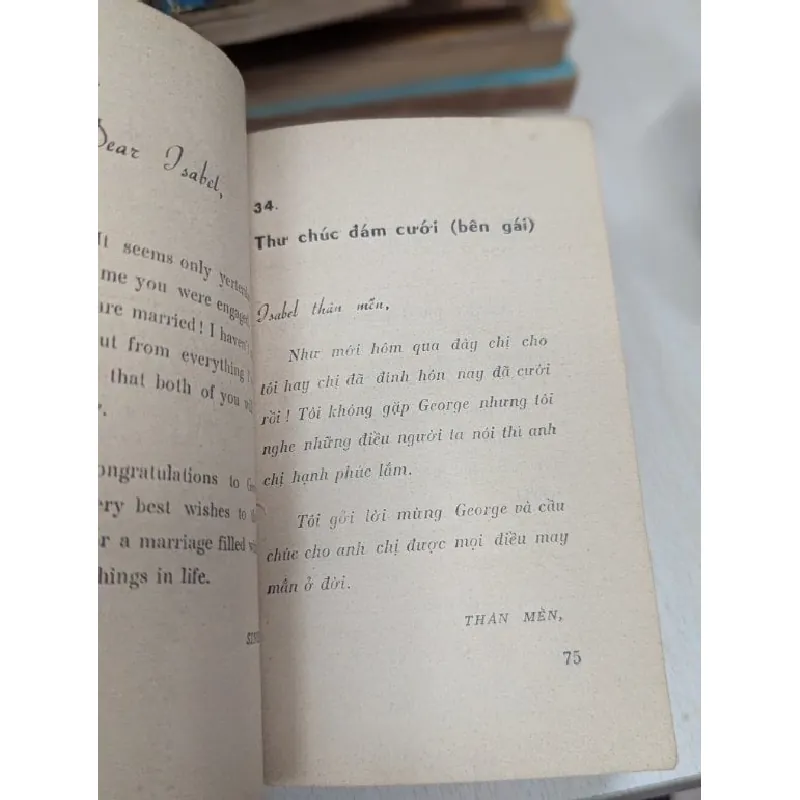 Dear Isabel,
It seems only
me you were engaged
are married! I haven't
out from everything
that both of you
ongratulations to
ery best wishes to
or a marriage filled
things in life.
34.
Thư chúc đám cưới (bên gái)
Isabel thân mến,
Như mới hôm qua đây chị cho
tôi hay chị đã đính hôn nay đã cưới
rồi ! Tôi không gặp George nhưng tôi
nghe những điều người ta nói thì anh
chị hạnh phúc lắm.
Tôi gởi lời mừng George và cầu
chúc cho anh chị được mọi điều may
mắn ở đời.
THÂN MẾN,
75